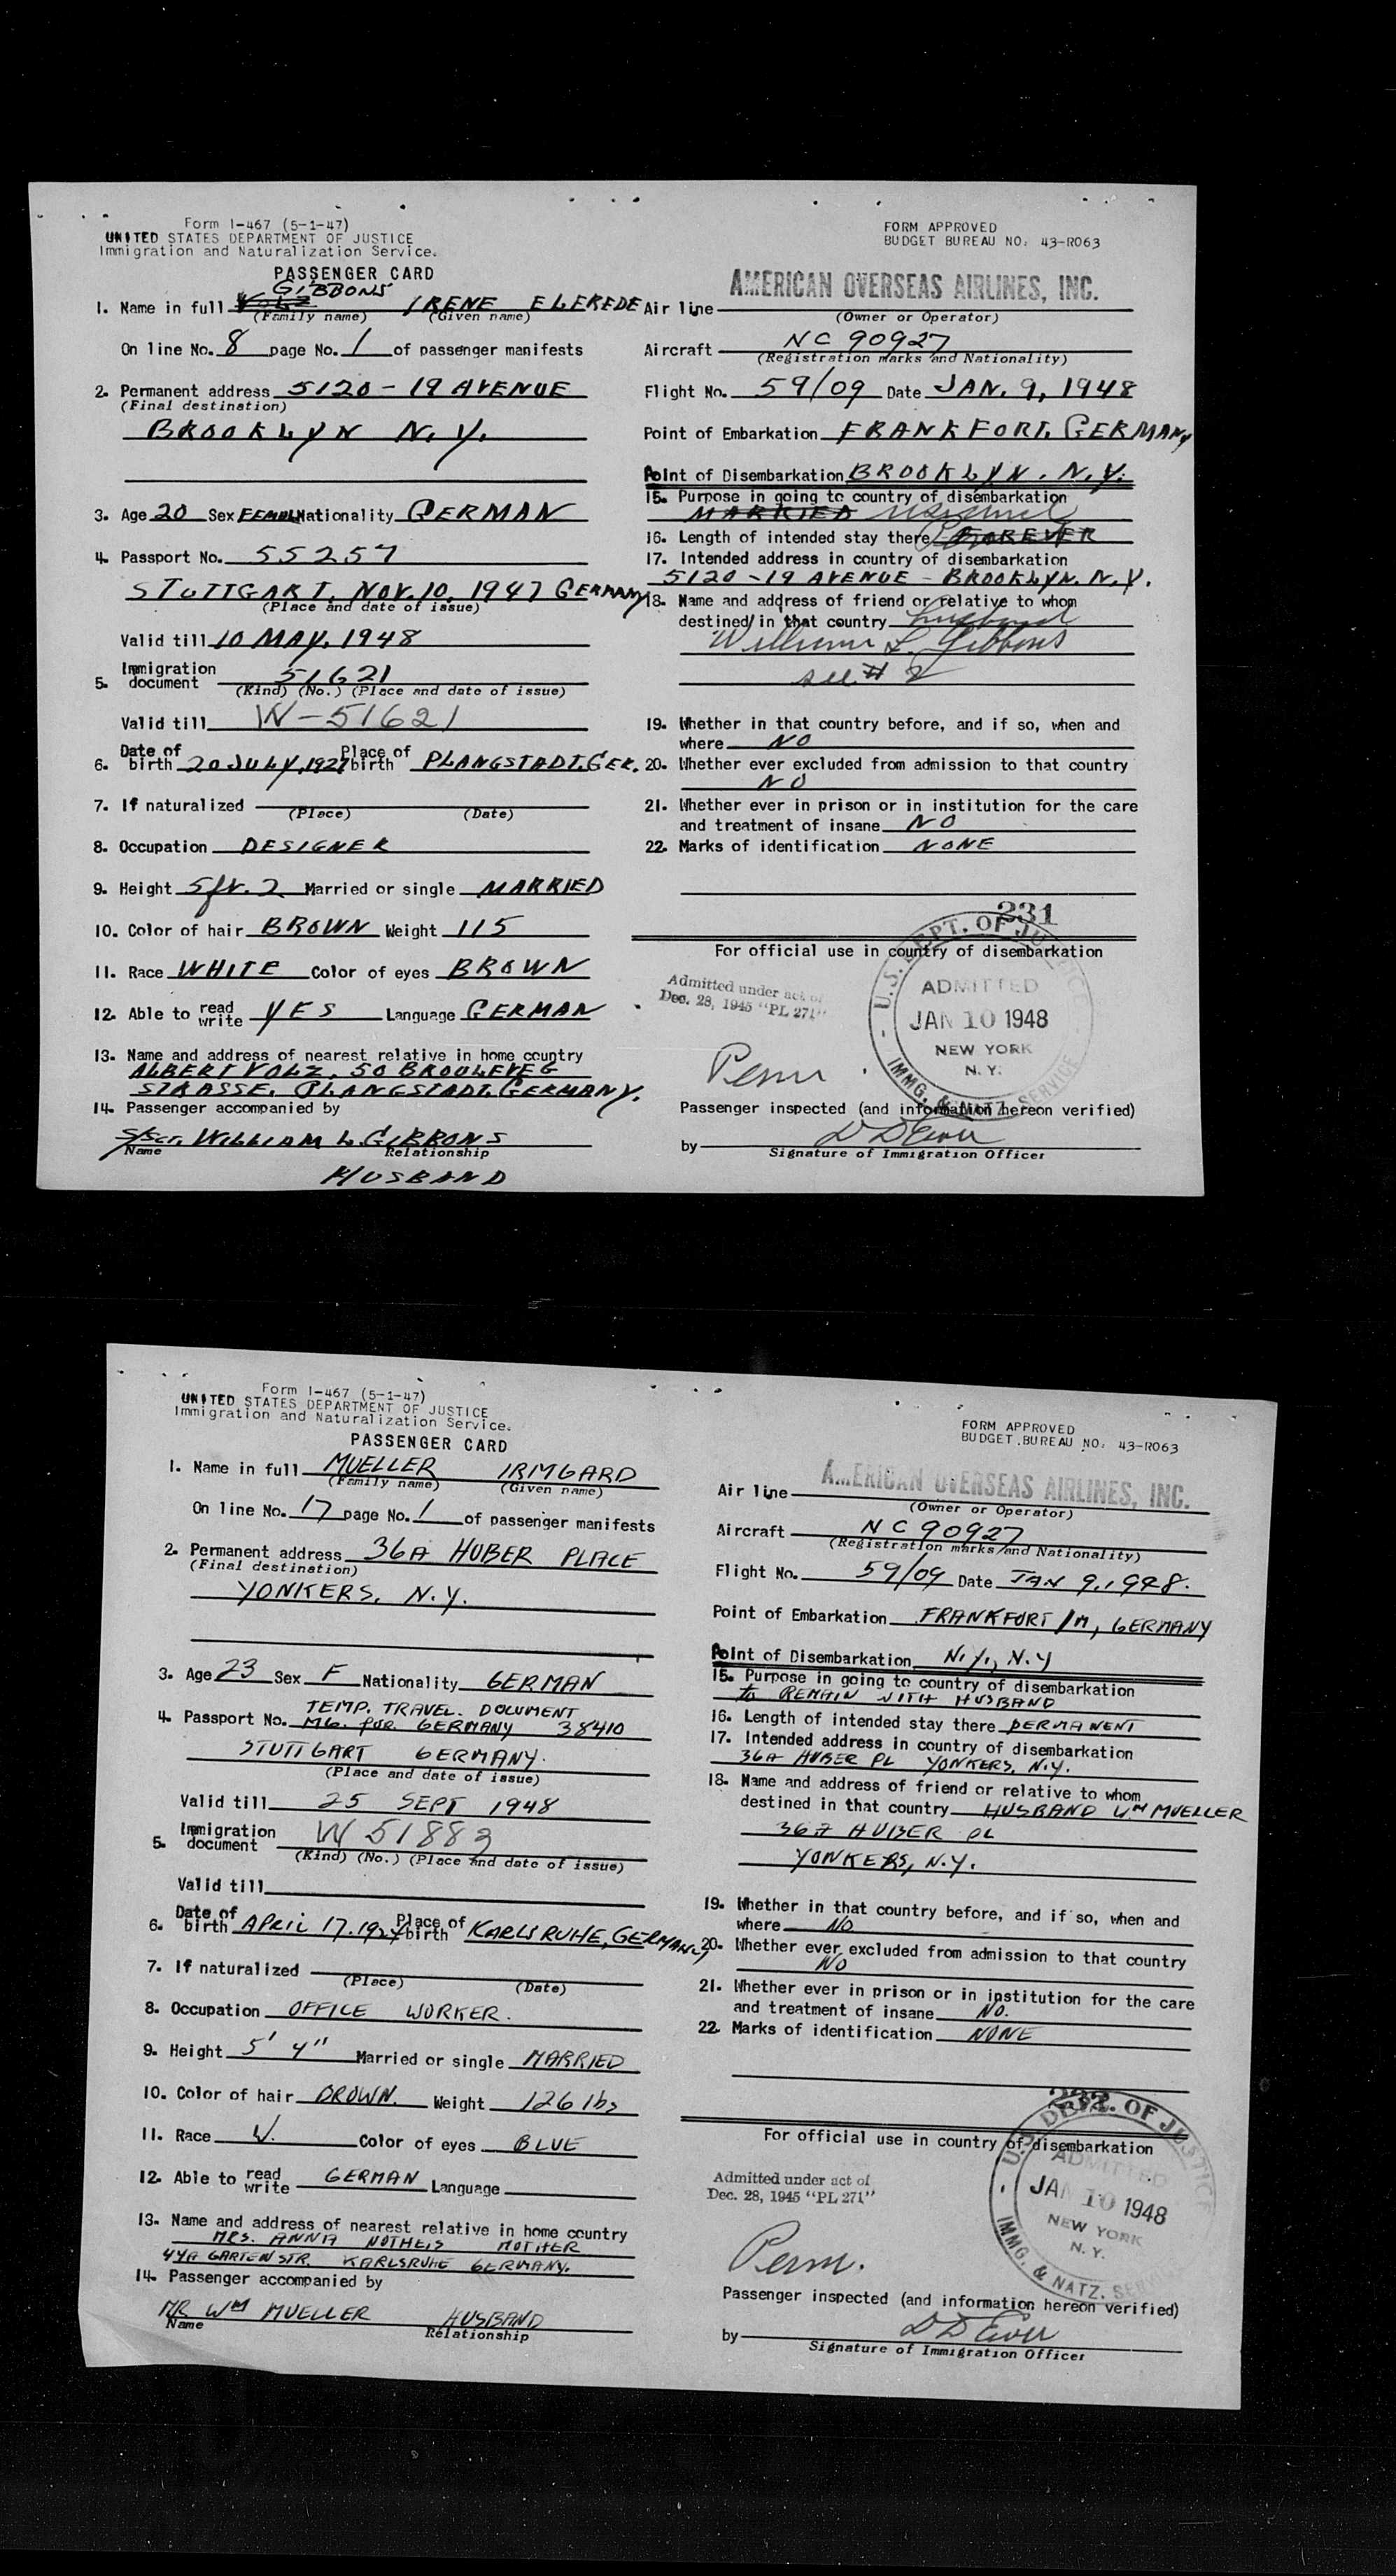 Form I-467 (5-1-47)
UNITED STATES DEPARTMENT OF JUSTICE
Immigration and Naturalization Service.
PASSENGER CARD
FORM APPROVED
BUDGET BUREAU NO. 43-R063
GIBBONS
1. Name in full VOLZ IRENE ELFREDE
(Family name) (Given name)
On line No. 8 page No. 1 of passenger manifests
2. Permanent address 5120 - 19 AVENUE
(Final destination)
BROOKLYN N.Y.
3. Age 20 Sex FEMALE Nationality GERMAN
4. Passport No. 55257
STUTTGART, NOV. 10, 1947 GERMANY
(Place and date of issue)
Valid till 10 MAY, 1948
5. Immigration document 51621
(Kind) (No.) (Place and date of issue)
Valid till W-51621
6. Date of birth 20 JULY, 1927 Place of birth PLANGSTADT, GER.
7. If naturalized
(Place) (Date)
8. Occupation DESIGNER
9. Height 5ft. 2 Married or single MARRIED
10. Color of hair BROWN Weight 115
11. Race WHITE Color of eyes BROWN
12. Able to read write YES Language GERMAN
13. Name and address of nearest relative in home country
ALBERT VOLZ, 50
STRASSE, PLANGSTADT, GERMANY.
14. Passenger accompanied by
S/SGT. WILLIAM L. GIBBONS
Name Relationship
HUSBAND
AMERICAN OVERSEAS AIRLINES, INC.
Air line
(Owner or Operator)
Aircraft NC 90927
(Registration marks and Nationality)
Flight No. 59/09 Date JAN. 9, 1948
Point of Embarkation FRANKFORT, GERMANY
Point of Disembarkation BROOKLYN, N.Y.
15. Purpose in going to country of disembarkation
MARRIED
16. Length of intended stay there FOREVER
17. Intended address in country of disembarkation
5120 - 19 AVENUE - BROOKLYN, N.Y.
18. Name and address of friend or relative to whom
destined in that country husband
William L. Gibbons
see # 2
19. Whether in that country before, and if so, when and
where NO
20. Whether ever excluded from admission to that country
NO
21. Whether ever in prison or in institution for the care
and treatment of insane NO
22. Marks of identification NONE
231
For official use in country of disembarkation
Admitted under act of
Dec. 28, 1945 "PL 271"
U.S. DEPT. OF JUSTICE
ADMITTED
JAN 10 1948
NEW YORK
N. Y.
IMMG. & NATZ. SERVICE
Perm
Passenger inspected (and information hereon verified)
by
Signature of Immigration Officer
Form I-467 (5-1-47)
UNITED STATES DEPARTMENT OF JUSTICE
Immigration and Naturalization Service.
PASSENGER CARD
FORM APPROVED
BUDGET BUREAU NO. 43-R063
1. Name in full MUELLER IRMGARD
(Family name) (Given name)
On line No. 17 page No. 1 of passenger manifests
2. Permanent address 36A HUBER PLACE
(Final destination)
YONKERS, N.Y.
3. Age 23 Sex F Nationality GERMAN
TEMP. TRAVEL. DOCUMENT
4. Passport No. MG. for. GERMANY 38410
STUTTGART GERMANY.
(Place and date of issue)
Valid till 25 SEPT 1948
5. Immigration document W 51883
(Kind) (No.) (Place and date of issue)
Valid till
6. Date of birth APRIL 17. 1924 Place of birth KARLSRUHE, GERMANY
7. If naturalized
(Place) (Date)
8. Occupation OFFICE WORKER.
9. Height 5' 4" Married or single MARRIED
10. Color of hair BROWN. Weight 126 lbs
11. Race W. Color of eyes BLUE
12. Able to read write GERMAN Language
13. Name and address of nearest relative in home country
MRS. ANNA NOTHEIS MOTHER
44A GARTENSTR. KARLSRUHE GERMANY.
14. Passenger accompanied by
MR WM MUELLER HUSBAND
Name Relationship
AMERICAN OVERSEAS AIRLINES, INC.
Air line
(Owner or Operator)
Aircraft NC 90927
(Registration marks and Nationality)
Flight No. 59/09 Date JAN 9, 1948.
Point of Embarkation FRANKFORT/M, GERMANY
Point of Disembarkation N.Y., N.Y
15. Purpose in going to country of disembarkation
to REMAIN WITH HUSBAND
16. Length of intended stay there PERMANENT
17. Intended address in country of disembarkation
36A HUBER PL YONKERS, N.Y.
18. Name and address of friend or relative to whom
destined in that country HUSBAND WM MUELLER
36A HUBER PL
YONKERS, N.Y.
19. Whether in that country before, and if so, when and
where NO
20. Whether ever excluded from admission to that country
NO
21. Whether ever in prison or in institution for the care
and treatment of insane NO.
22. Marks of identification NONE
232
For official use in country of disembarkation
Admitted under act of
Dec. 28, 1945 "PL 271"
U.S. DEPT. OF JUSTICE
ADMITTED
JAN 10 1948
NEW YORK
N. Y.
IMMG. & NATZ. SERVICE
Perm.
Passenger inspected (and information hereon verified)
by
Signature of Immigration Officer